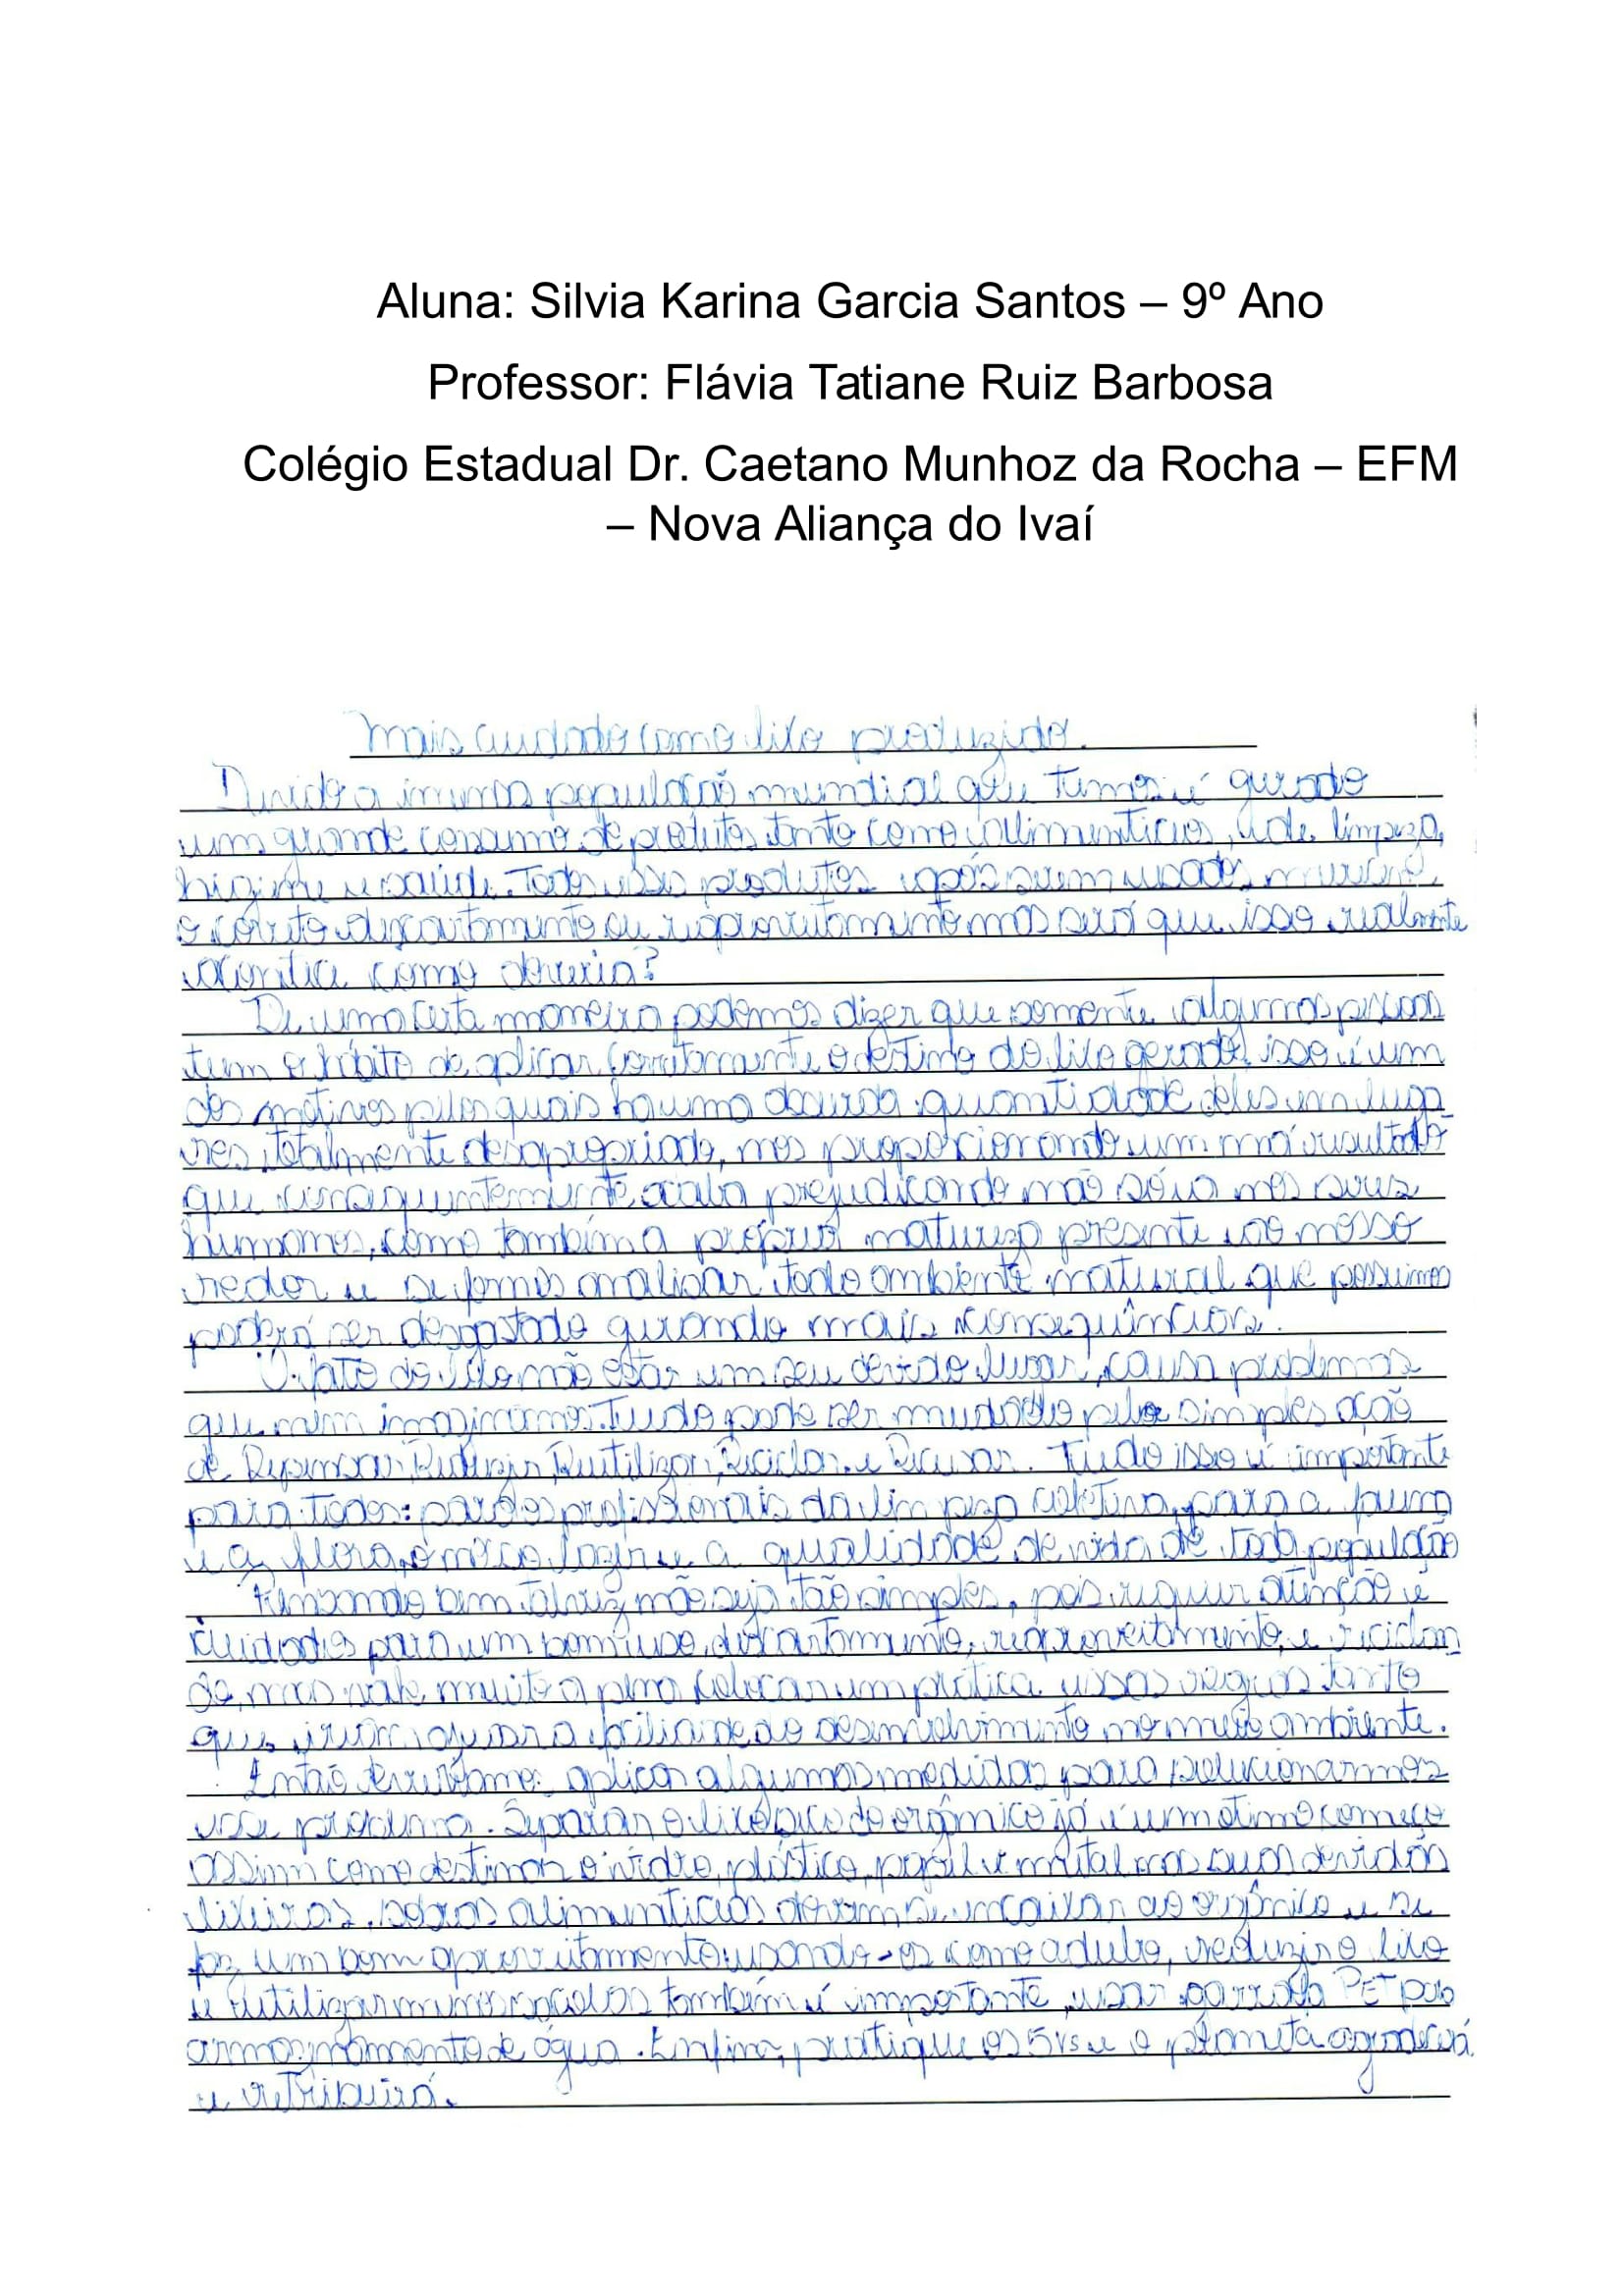 Aluna: Silvia Karina Garcia Santos – 9º Ano
Professor: Flávia Tatiane Ruiz Barbosa
Colégio Estadual Dr. Caetano Munhoz da Rocha – EFM
– Nova Aliança do Ivaí
Mais cuidado com o lixo produzido.
Devido a imensa população mundial que temos é gerado
um grande consumo de produtos tanto como alimentícios, de limpeza,
higiene e saúde. Todos esses produtos após serem usados merecem
o correto descartamento ou reaproveitamento mas será que isso realmente
acontece como deveria?
De uma certa maneira podemos dizer que somente algumas pessoas
tem o hábito de aplicar corretamente o destino do lixo gerado, isso é um
dos motivos pelos quais há uma absurda quantidade deles em luga
res totalmente desapropriado, nos proporcionando um má resultado
que consequentemente acaba prejudicando não só a nós seres
humanos, como também a própria natureza presente ao nosso
redor e se formos analisar todo ambiente natural que possuimos
poderá ser desgastado gerando mais consequências.
O fato do lixo não estar em seu devido lugar, causa problemas
que nem imaginamos. Tudo pode ser mudado pela simples ação
de Repensar, Reduzir, Reutilizar, Reciclar e Recusar. Tudo isso é importante
para todos: para os profissionais da limpeza coletiva, para a fauna
e a flora, o nosso lazer e a qualidade de vida de toda população
Pensando bem talvez não seja tão simples, pois requer atenção e
cuidados para um bom uso, descartamento, reaproveitamento, e reciclan
do, mas vale muito a pena colocar em prática essas regras tanto
que irem ajudar a do desenvolvimento no meio ambiente.
Então deveríamos aplicar algumas medidas para solucionarmos
esse problema. Separar o lixo seco do orgânico já é um ótimo começo
assim como destinar o vidro, plástico, papel e metal nas suas devidas
lixeiras, sobras alimentícias devem se encaixar ao orgânico e se
faz um bom aproveitamento usando-os como adubo, reduzir o lixo
e reutilizar menos sacolas também é importante, usar garrafa PET para
armazenamento de água. Enfim, pratique os 5 rs e o planeta agradecerá
e retribuirá.